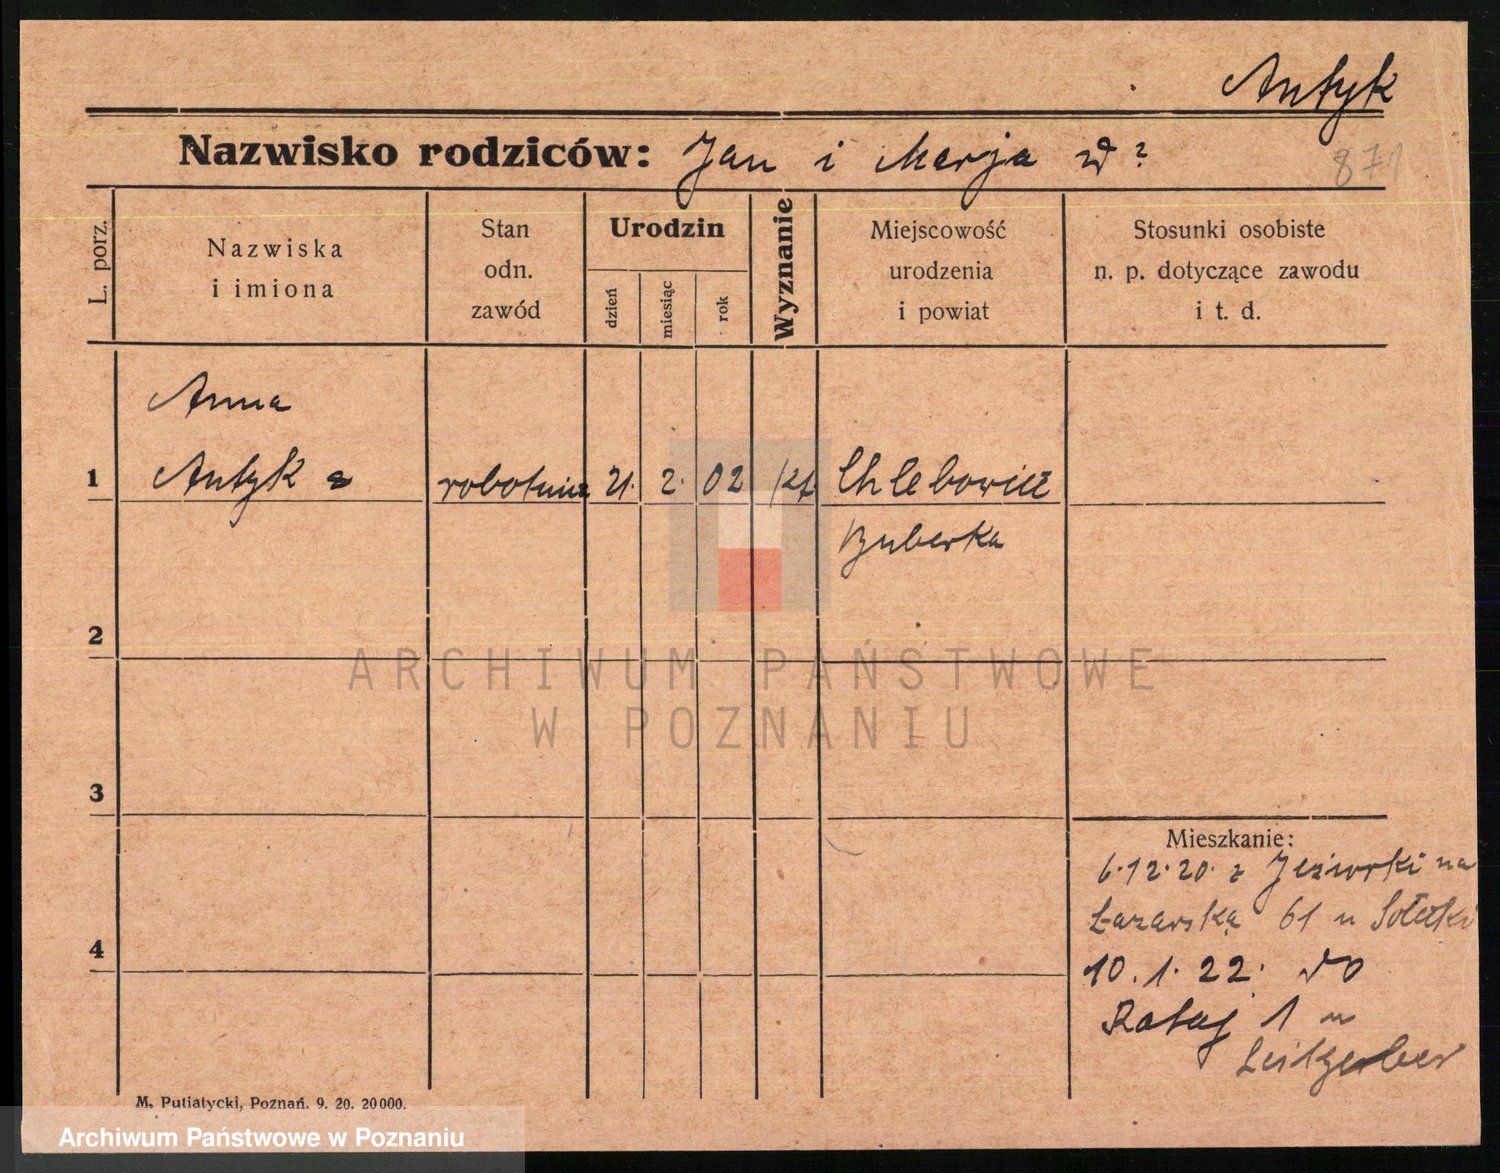 Antyk
Nazwisko rodziców: Jan i Marja d ?
871
L. porz.
Nazwiska
i imiona
Stan
odn.
zawód
Urodzin
dzień
miesiąc
rok
Wyznanie
Miejscowość
urodzenia
i powiat
Stosunki osobiste
n. p. dotyczące zawodu
i t. d.
Anna
1 Antyk robotnica 21. 2. 02 kat Chlebowice
Buberka
2
ARCHIWUM PAŃSTWOWE
W POZNANIU
3
Mieszkanie:
6.12.20. z na
Łazarską 61 u
4
10.1.22. do
Rataj 1 u
Leitgeber
M. Putiatycki, Poznań. 9. 20. 20000.
Archiwum Państwowe w Poznaniu